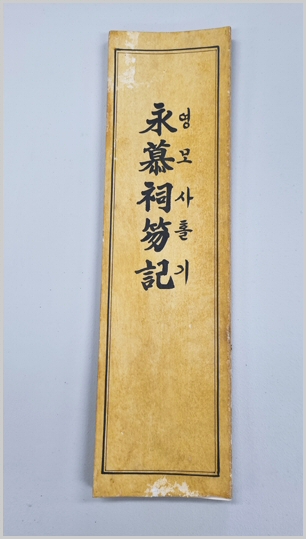 永慕祠笏記
영모사홀기